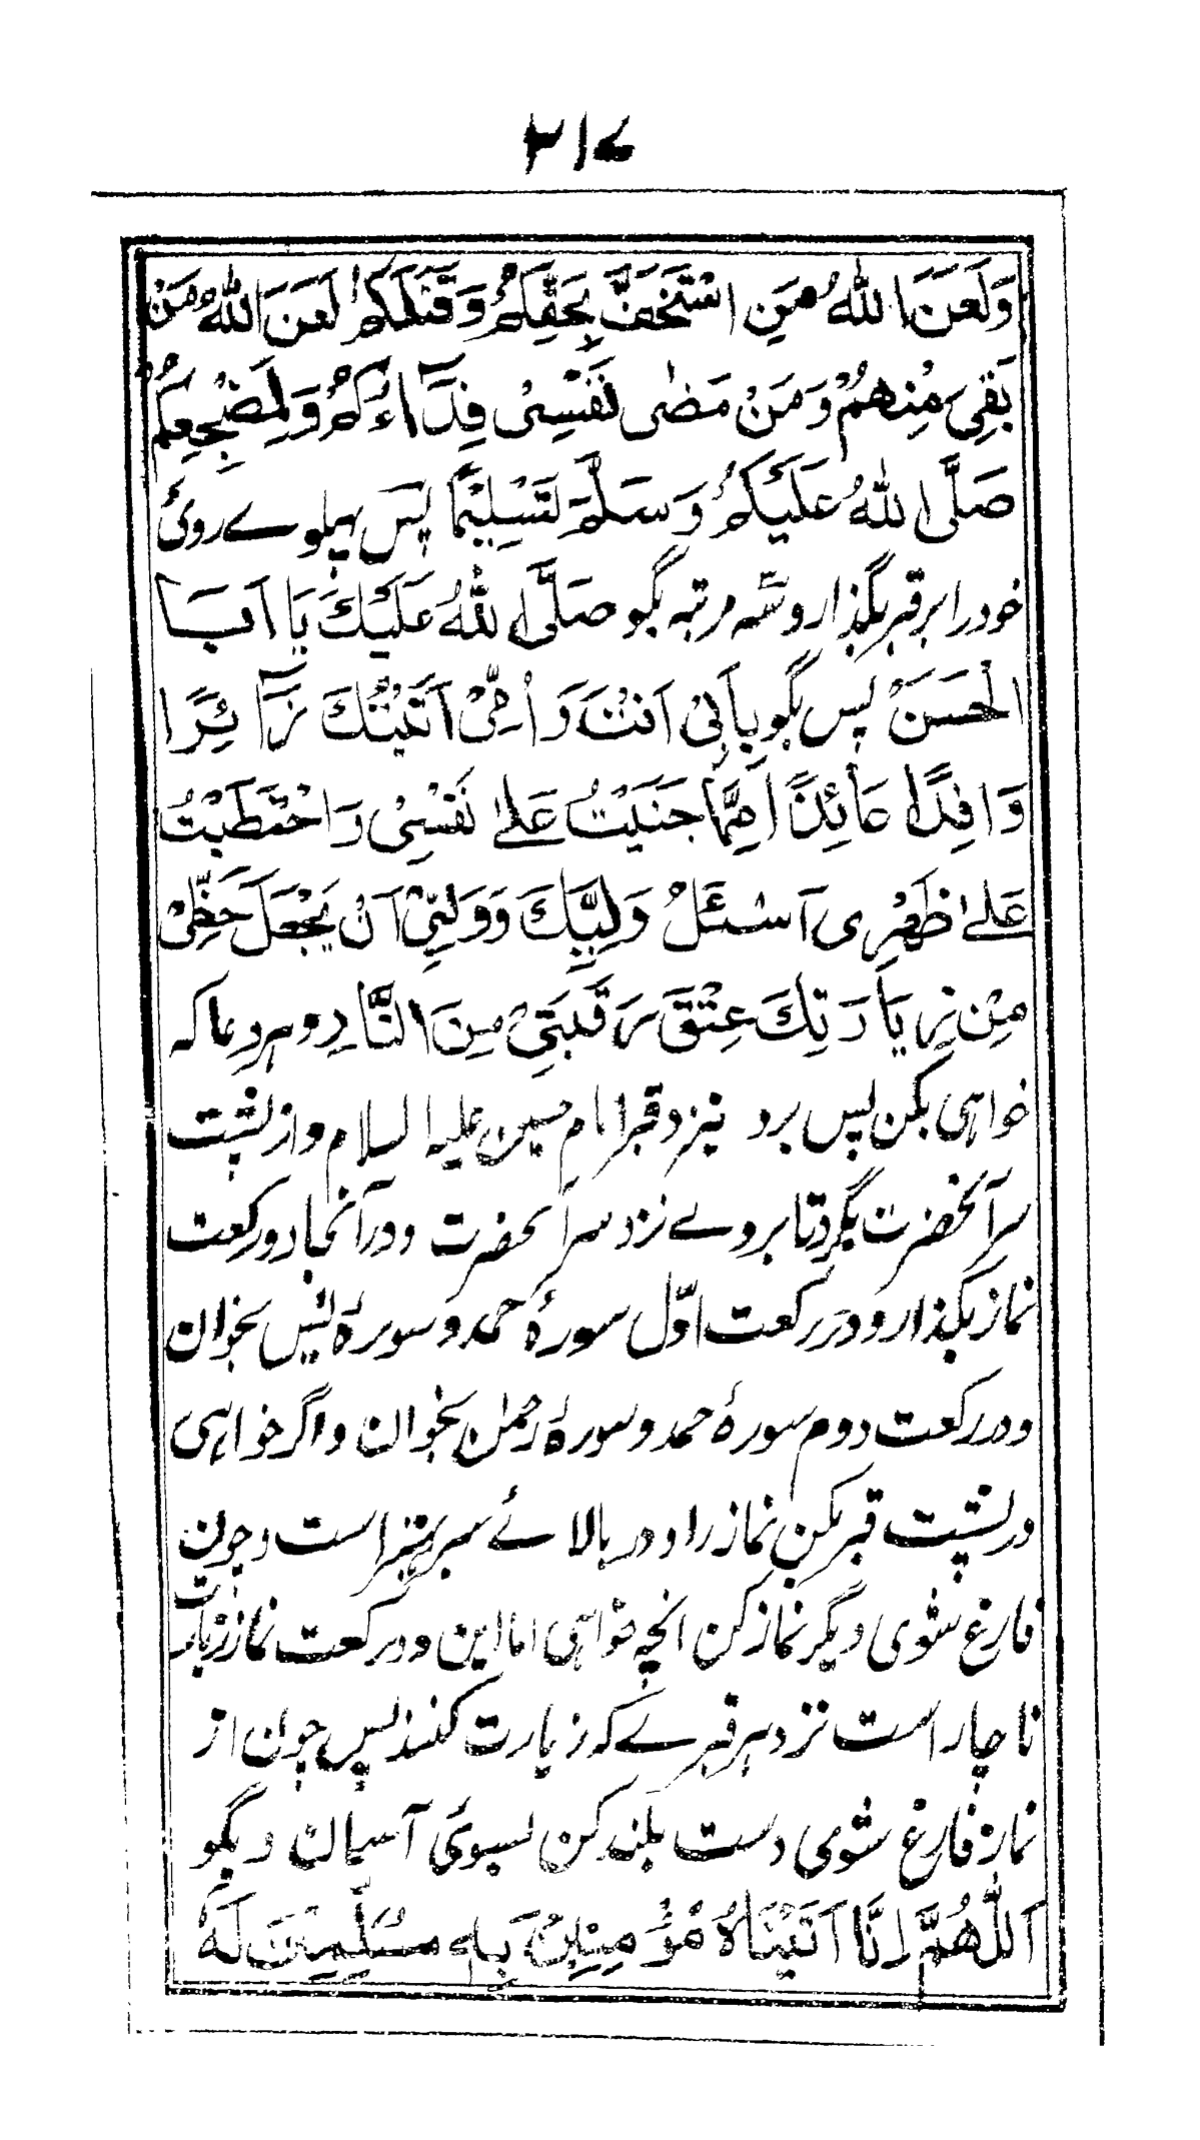 ۳۱۷
وَلَعَنَ اللّٰهُ مَنِ اسْتَخَفَّ بِحَقِّكُمْ وَقَتَلَكُمْ لَعَنَ اللّٰهُ مَنْ
بَقِيَ مِنْهُمْ وَمَنْ مَضٰى نَفْسِيْ فِدَآءُكُمْ وَلِمَضْجَعِكُمْ
صَلَّى اللّٰهُ عَلَيْكُمْ وَسَلَّمَ تَسْلِيْمًا پس پہلوے روئ
خود را بر قبر بگذار و سه مرتبه بگو صَلَّى اللّٰهُ عَلَيْكَ يَا اَبَا
الْحَسَنْ پس بگو بِاَبِيْ اَنْتَ وَ اُمِّيْ اَتَيْتُكَ زَآئِرًا
وَافِدًا عَائِذًا مِمَّا جَنَيْتُ عَلٰى نَفْسِيْ وَاحْتَطَبْتُ
عَلٰى ظَهْرِى اَسْئَلُ وَلِيَّكَ وَوَلِيِّىْ اَنْ يَجْعَلَ حَظِّىْ
مِنْ زِيَارَتِكَ عِتْقَ رَقَبَتِىْ مِنَ النَّارِ و هر دعا که
خواہی بکن پس برو نیزد قبر امام حسین علیہ السلام و از پشت
سر آنحضرت بگرد تا بروے نزد سر آنحضرت و در آنجا دو رکعت
نماز بگذار و در رکعت اوّل سورۂ حمد و سورۂ یٰس بخوان
و در رکعت دوم سورۂ حمد و سورۂ رحمٰن بخوان و اگر خواہی
در پشت قبر بکن نماز را و در بالائے سر بهتر است و چون
فارغ شوی دیگر نماز کن انچہ خواہی اما این دو رکعت نماز زیارت
ناچار است نزد ہر قبرے کہ زیارت کنند پس چون از
نماز فارغ شوی دست بلند کن بسوئ آسمان و بگو
اَللّٰهُمَّ اِنَّا اَتَيْنَاهُ مُؤْمِنِيْنَ بِهِ مُسَلِّمِيْنَ لَهُ